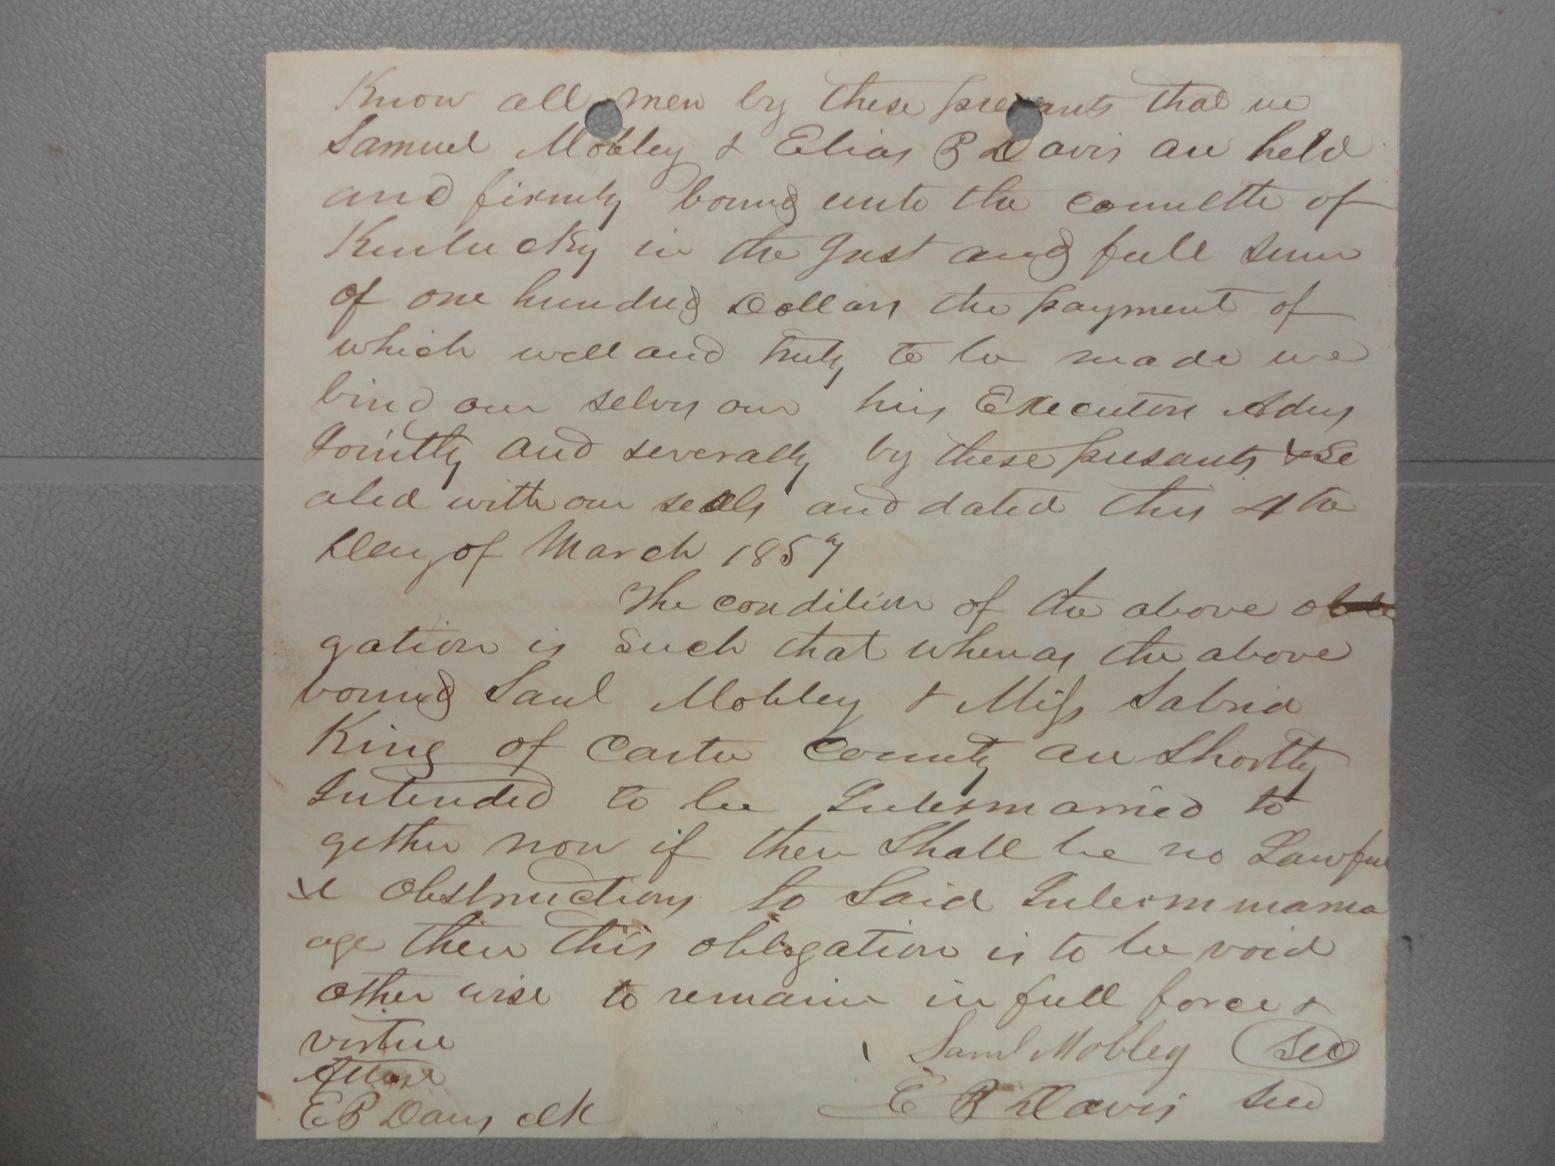 Know all men by these presants that we
Samuel Mobley & Elias P Davis are held
and firmly bound unto the comulth of
Kentucky in the Just and full sum
of one hundred Dollars the payment of
which well and truly to be made we
bind our selvs our hirs Executors Adms
Jointly and severally by these presants & Se
aled with our seals and dated this 4th
Day of March 1857
The condition of the above obli
gation is such that whereas the above
bound Saml Mobley & Miss Sabria
King of Carter County are Shortly
Intended to be Intermarried to
gether now if there Shall be no Lawfu
l obstructions to Said Intermmarria
age then this obligation is to be void
other wise to remain in full force &
virtue
Attest
E P Davis clk
Saml Mobley Seal
E P Davis Seal